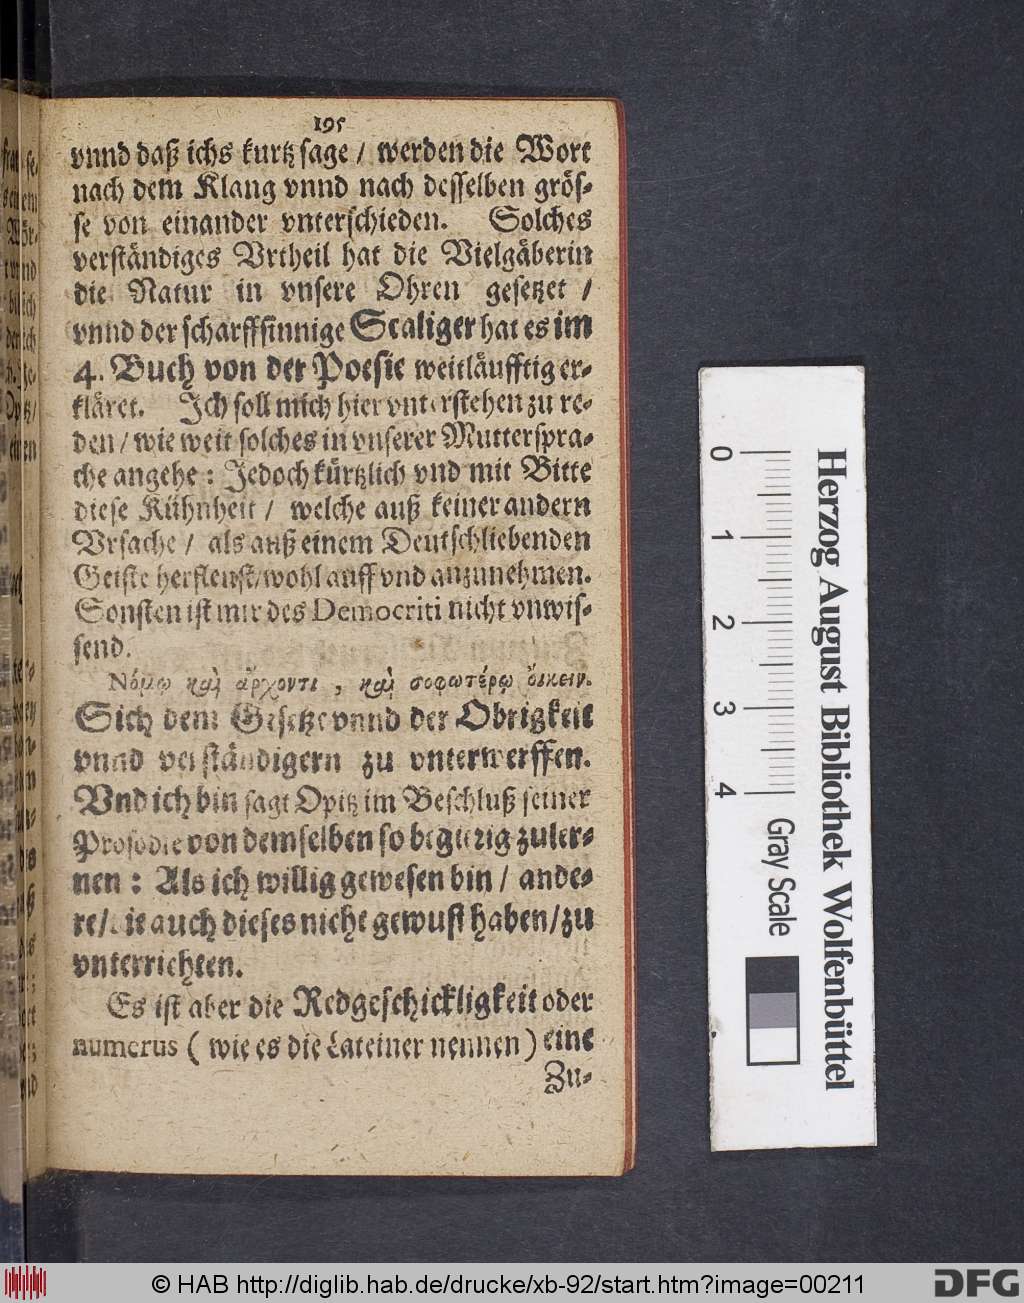 195
vnnd daß ichs kurtz sage / werden die Wort
nach dem Klang vnnd nach desselben grös-
se von einander vnterschieden. Solches
verständiges Vrtheil hat die Vielgäberin
die Natur in vnsere Ohren gesetzet /
vnnd der scharffsinnige Scaliger hat es im
4. Buch von der Poesie weitläufftig er-
kläret. Ich soll mich hier vnterstehen zu re-
den / wie weit solches in vnserer Mutterspra-
che angehe : Jedoch kürtzlich vnd mit Bitte
diese Kühnheit / welche auß keiner andern
Vrsache / als auß einem Deutschliebenden
Geiste herfleust / wohl auff vnd anzunehmen.
Sonsten ist mir des Democriti nicht vnwis-
send.
Νόμῳ καὶ ἄρχοντι , καὶ σοφωτέρῳ ὄικειν.
Sich dem Gesetze vnnd der Obrigkeit
vnnd verständigern zu vnterwerffen.
Vnd ich bin sagt Opitz im Beschluß seiner
Prosodie von demselben so begierig zuler-
nen : Als ich willig gewesen bin / ande-
re / die auch dieses nicht gewust haben / zu
vnterrichten.
Es ist aber die Redgeschickligkeit oder
numerus ( wie es die Lateiner nennen ) eine
Zu-
Herzog August Bibliothek Wolfenbüttel
0 1 2 3 4
Gray Scale
© HAB http://diglib.hab.de/drucke/xb-92/start.htm?image=00211
DFG